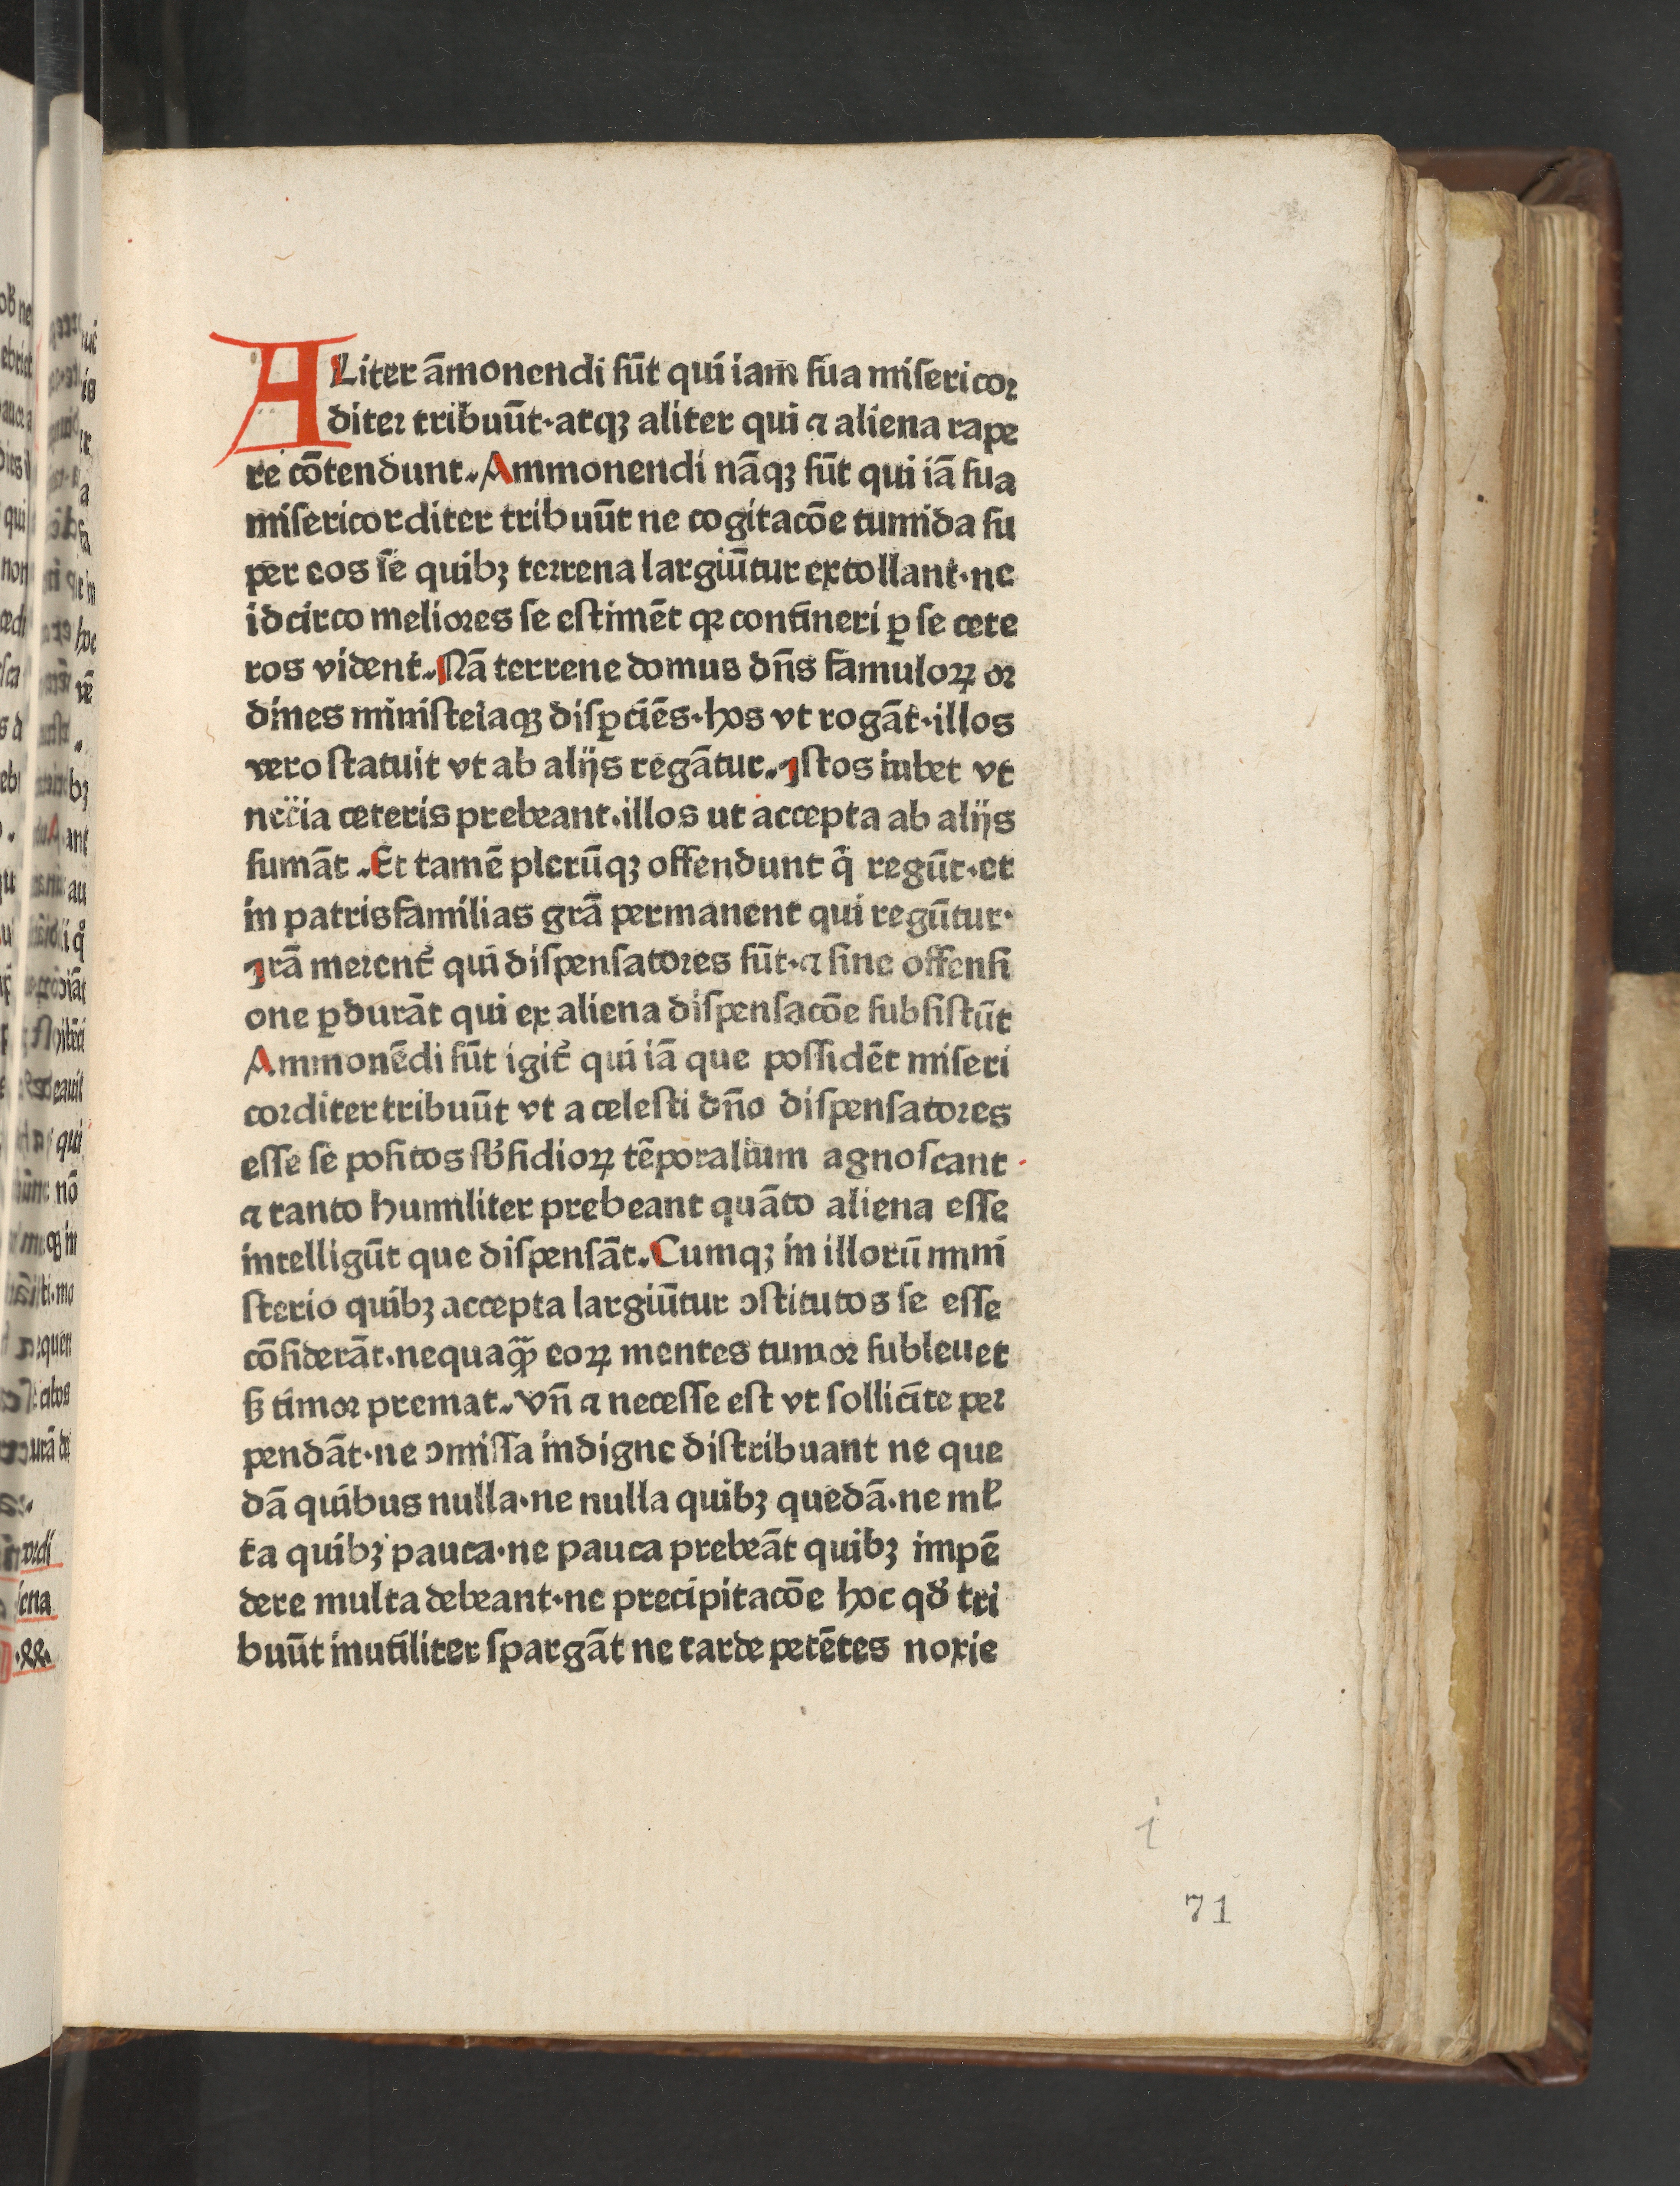 ALiter āmonendi ſūt qui iam ſua miſericoꝛ
diteꝛ tribuūt·atqꝫ aliter qui ⁊ aliena rape
re cōtendunt. Ammonendi nāqꝫ ſūt qui iā ſua
miſericorditer tribuūt ne cogitacōe tumida ſu
per eos ſe quibꝫ teꝛrena largiūtur extollant·ne
idcirco melioꝛes ſe eſtimēt qꝛ contineri ꝑ ſe cete
ros vident. Nā terrene domus dn̄s famuloꝝ oꝛ
dines miniſteiaqꝫ diſꝑciēs·hos vt rogāt·illos
vero ſtatuit vt ab alijs regātur. Iſtos iubet vt
nec̄ia ceteris prebeant·illos ut accepta ab alijs
ſumāt. Et tamē plerūqꝫ offendunt q̄ regūt·et
in patrisfamilias grā permanent qui regūtur·
Irā merent᷑ qui diſpenſatoꝛes ſūt·⁊ ſine offenſi
one ꝑdurāt qui ex aliena diſpenſacōe ſubſiſtūt
Ammonēdi ſūt igit᷑ qui iā que poſſidēt miſeri
coꝛditer tribuūt vt a celeſti dn̄o diſpenſatoꝛes
eſſe ſe poſitos ſb᷒ſidioꝝ tēporalium agnoſcant·
⁊ tanto humiliter prebeant quāto aliena eſſe
intelligūt que diſpenſāt. Cumqꝫ in illorū mini
ſterio quibꝫ accepta largiūtur ꝯſtitutos ſe eſſe
cōſiderāt·nequaqͣꝫ eoꝝ mentes tumoꝛ ſubleuet
ſꝫ timoꝛ premat. Vn̄ ⁊ neceſſe eſt vt ſollicite peꝛ
pendāt·ne ꝯmiſſa indigne diſtribuant ne que
dā quibus nulla·ne nulla quibꝫ quedā·ne ml̄
ta quibꝫ pauca·ne pauca prebeāt quibꝫ impē
dere multa debeant·ne precipitacōe hoc qd̓ tri
buūt inutiliter ſpargāt ne tarde petētes noxie
i
71